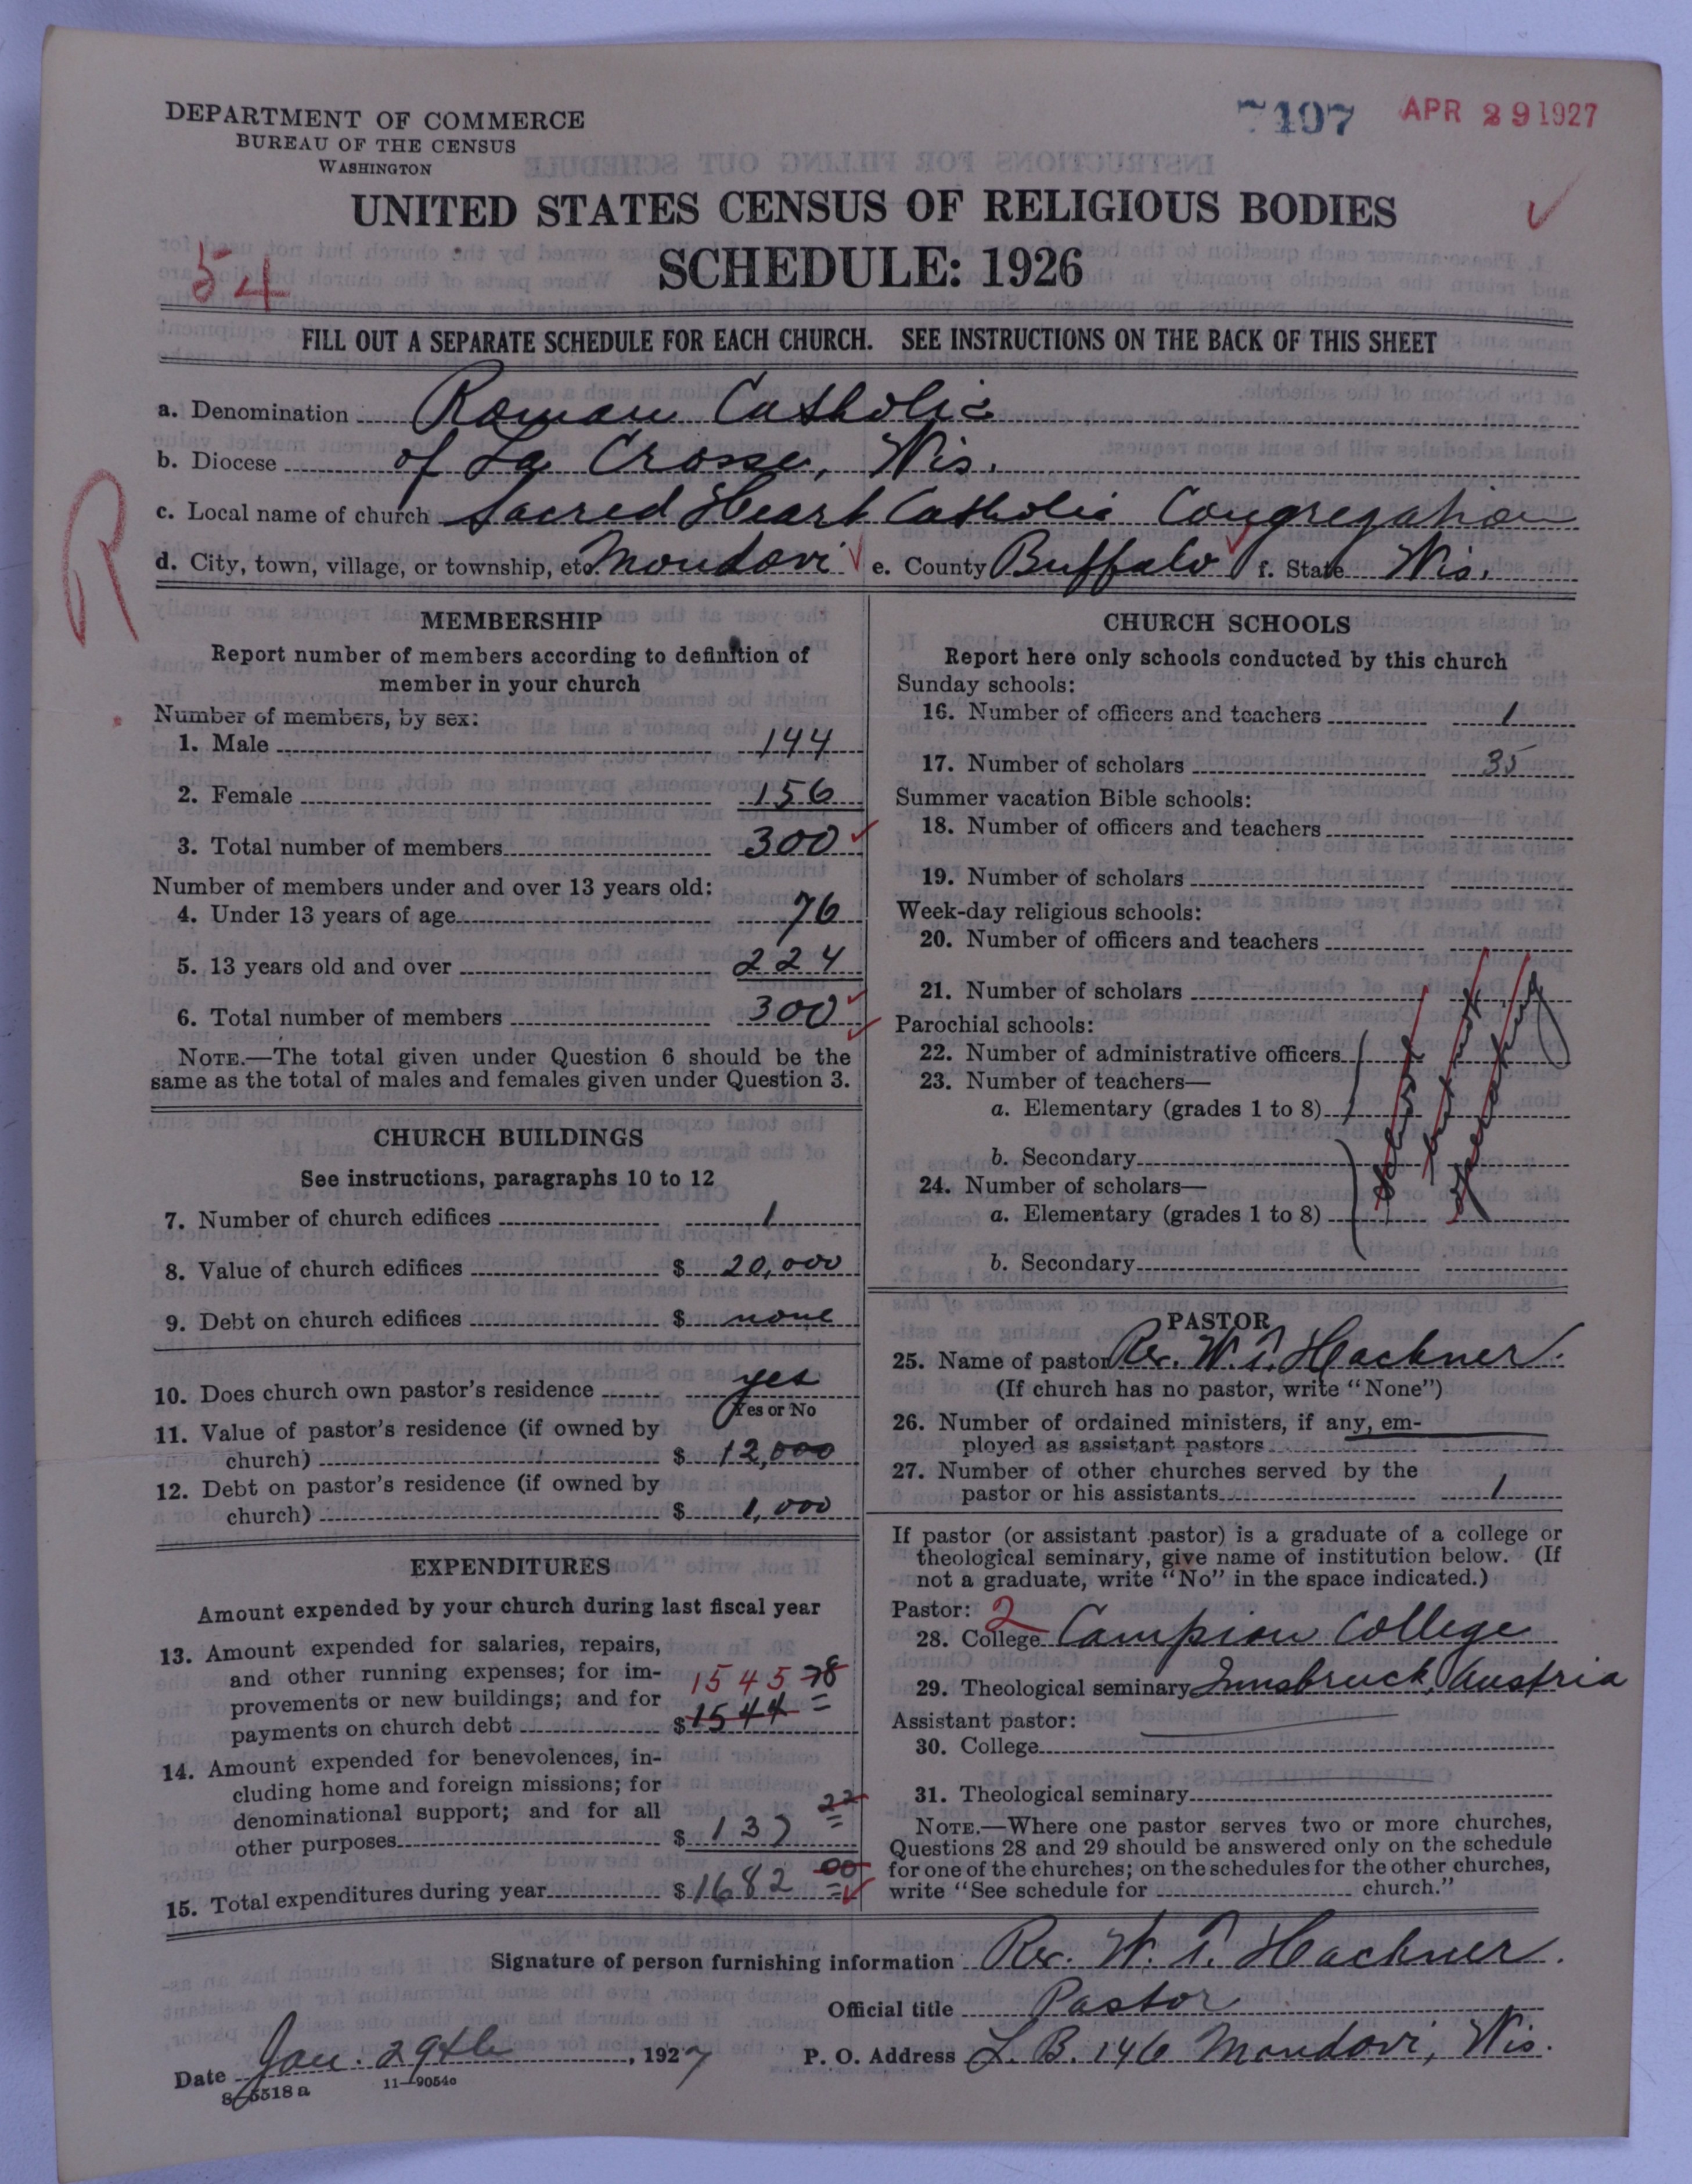 DEPARTMENT OF COMMERCE
BUREAU OF THE CENSUS
WASHINGTON
7497 APR 29 1927
UNITED STATES CENSUS OF RELIGIOUS BODIES
SCHEDULE: 1926
54
FILL OUT A SEPARATE SCHEDULE FOR EACH CHURCH. SEE INSTRUCTIONS ON THE BACK OF THIS SHEET
a. Denomination Roman Catholic
b. Diocese of La Crosse, Wis.
c. Local name of church Sacred Heart Catholic Congregation
d. City, town, village, or township, etc. Mondovi e. County Buffalo f. State Wis.
R
MEMBERSHIP
Report number of members according to definition of
member in your church
Number of members, by sex:
1. Male 144
2. Female 156
3. Total number of members 300
Number of members under and over 13 years old:
4. Under 13 years of age 76
5. 13 years old and over 224
6. Total number of members 300
NOTE.—The total given under Question 6 should be the
same as the total of males and females given under Question 3.
CHURCH BUILDINGS
See instructions, paragraphs 10 to 12
7. Number of church edifices 1
8. Value of church edifices $ 20,000
9. Debt on church edifices $ none
10. Does church own pastor's residence yes
Yes or No
11. Value of pastor's residence (if owned by
church) $ 12,000
12. Debt on pastor's residence (if owned by
church) $ 1,000
EXPENDITURES
Amount expended by your church during last fiscal year
13. Amount expended for salaries, repairs,
and other running expenses; for im-
1545 78
provements or new buildings; and for
payments on church debt $ 1544
14. Amount expended for benevolences, in-
cluding home and foreign missions; for
denominational support; and for all 22
other purposes $ 137
15. Total expenditures during year $ 1682 00
CHURCH SCHOOLS
Report here only schools conducted by this church
Sunday schools:
16. Number of officers and teachers 1
17. Number of scholars 35
Summer vacation Bible schools:
18. Number of officers and teachers
19. Number of scholars
Week-day religious schools:
20. Number of officers and teachers
21. Number of scholars
Parochial schools:
22. Number of administrative officers
23. Number of teachers—
a. Elementary (grades 1 to 8)
b. Secondary
24. Number of scholars—
a. Elementary (grades 1 to 8)
b. Secondary
PASTOR
25. Name of pastor Rev. W. T. Hackner.
(If church has no pastor, write "None")
26. Number of ordained ministers, if any, em-
ployed as assistant pastors
27. Number of other churches served by the
pastor or his assistants 1
If pastor (or assistant pastor) is a graduate of a college or
theological seminary, give name of institution below. (If
not a graduate, write "No" in the space indicated.)
Pastor: 2
28. College Campion College
29. Theological seminary Innsbruck, Austria
Assistant pastor:
30. College
31. Theological seminary
NOTE.—Where one pastor serves two or more churches,
Questions 28 and 29 should be answered only on the schedule
for one of the churches; on the schedules for the other churches,
write "See schedule for church."
Signature of person furnishing information Rev. W. T. Hackner.
Official title Pastor
Date Jan. 29th, 1927 P. O. Address L. B. 146 Mondovi, Wis.
8-5518 a 11-9054c